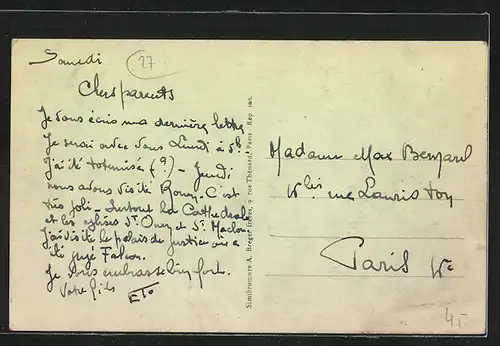 Samedi
27
Chers parents
Je vous écris ma dernière lettre
Je serai avec vous Lundi à 5h
J'ai été totemisé (?) - Jeudi
nous avons visité Rouen - C'est
très joli - surtout la Cathédrale
et les églises St Ouen et St Maclou
J'ai visité le palais de Justice où a
été jugé Falcon.
Je vous embrasse bien fort.
Votre fils
Simibromure A. Breger frères, 9 rue Thénard, Paris - Rep. int.
Madame Max
bis rue Lauriston
Paris
4,-